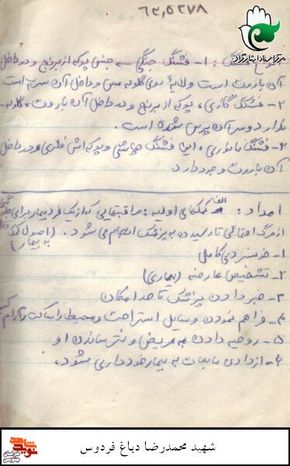 ۶۲,۵۲۷۸
۱- فشنگ جنگی - جنس پوکه از برنج و در داخل
آن باروت است و لایه روی گلوله مس و داخل آن سرب است
۲- فشنگ گازی، پوکه از برنج و در داخل آن باروت، گلوله
ندارد و سر آن پرس شده است.
۳- فشنگ مانوری، این فشنگ چاشنی و پوکه اش فلزی و در داخل
آن باروت وجود دارد
امداد: الف کمکهای اولیه: مراقبتهایی که از یک فرد بیمار برای
از مرگ احتمالی تا رسیدن به پزشک انجام می شود. (اصول کمک
به بیمار)
۱- خونسردی کامل
۲- تشخیص عارضه (بیماری)
۳- خبر دادن پزشک تا حد امکان
۴- فراهم نمودن وسایل استراحت و محیط را ساکت و آرام کند
۵- روحیه دادن به مریض و نترساندن او
۶- از دادن مایعات به بیمار خودداری شود.
شهید محمدرضا دباغ فردوس